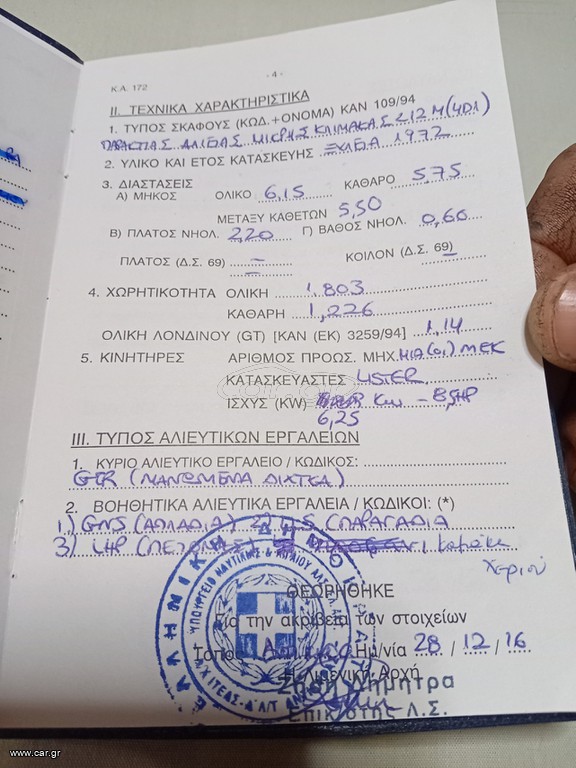 Κ.Λ. 172
- 4 -
ΙΙ. ΤΕΧΝΙΚΑ ΧΑΡΑΚΤΗΡΙΣΤΙΚΑ
1. ΤΥΠΟΣ ΣΚΑΦΟΥΣ (ΚΩΔ.+ΟΝΟΜΑ) ΚΑΝ 109/94
ΠΑΡΑΚΤΙΑΣ ΑΛΙΕΙΑΣ ΜΙΚΡΗΣ ΚΛΙΜΑΚΑΣ <12 Μ (4Δ1)
2. ΥΛΙΚΟ ΚΑΙ ΕΤΟΣ ΚΑΤΑΣΚΕΥΗΣ ΞΥΛΕΙΑ 1972
3. ΔΙΑΣΤΑΣΕΙΣ
Α) ΜΗΚΟΣ ΟΛΙΚΟ 6,15 ΚΑΘΑΡΟ 5,75
ΜΕΤΑΞΥ ΚΑΘΕΤΩΝ 5,50
Β) ΠΛΑΤΟΣ ΝΗΟΛ. 2,20 Γ) ΒΑΘΟΣ ΝΗΟΛ. 0,60
ΠΛΑΤΟΣ (Δ.Σ. 69) – ΚΟΙΛΟΝ (Δ.Σ. 69) –
–
4. ΧΩΡΗΤΙΚΟΤΗΤΑ ΟΛΙΚΗ 1,803
ΚΑΘΑΡΗ 1,226
ΟΛΙΚΗ ΛΟΝΔΙΝΟΥ (GT) [ΚΑΝ (ΕΚ) 3259/94] 1,14
5. ΚΙΝΗΤΗΡΕΣ ΑΡΙΘΜΟΣ ΠΡΟΩΣ. ΜΗΧ. ΜΙΑ (01) ΜΕΚ
ΚΑΤΑΣΚΕΥΑΣΤΕΣ LISTER
ΙΣΧΥΣ (KW) KW – 8,5HP
6,25
ΙΙΙ. ΤΥΠΟΣ ΑΛΙΕΥΤΙΚΩΝ ΕΡΓΑΛΕΙΩΝ
1. ΚΥΡΙΟ ΑΛΙΕΥΤΙΚΟ ΕΡΓΑΛΕΙΟ / ΚΩΔΙΚΟΣ:
GTR (ΜΑΝΩΜΕΝΑ ΔΙΧΤΥΑ)
2. ΒΟΗΘΗΤΙΚΑ ΑΛΙΕΥΤΙΚΑ ΕΡΓΑΛΕΙΑ / ΚΩΔΙΚΟΙ: (*)
1) GNS (ΑΠΛΑΔΙΑ) 2) LLS (ΠΑΡΑΓΑΔΙΑ
3) LHP (ΠΕΤΟΝΙΕΣ) καμάκι
χεριού
ΘΕΩΡΗΘΗΚΕ
Για την ακρίβεια των στοιχείων
Τόπος Ημ/νία 28 / 12 / 16
Η Λιμενική Αρχή
Δήμητρα
Επικ/στής Λ.Σ.
ΕΛΛΗΝΙΚΗ ΔΗΜΟΚΡΑΤΙΑ
ΥΠΟΥΡΓΕΙΟ ΝΑΥΤΙΛΙΑΣ & ΑΙΓΑΙΟΥ
car.gr
www.car.gr